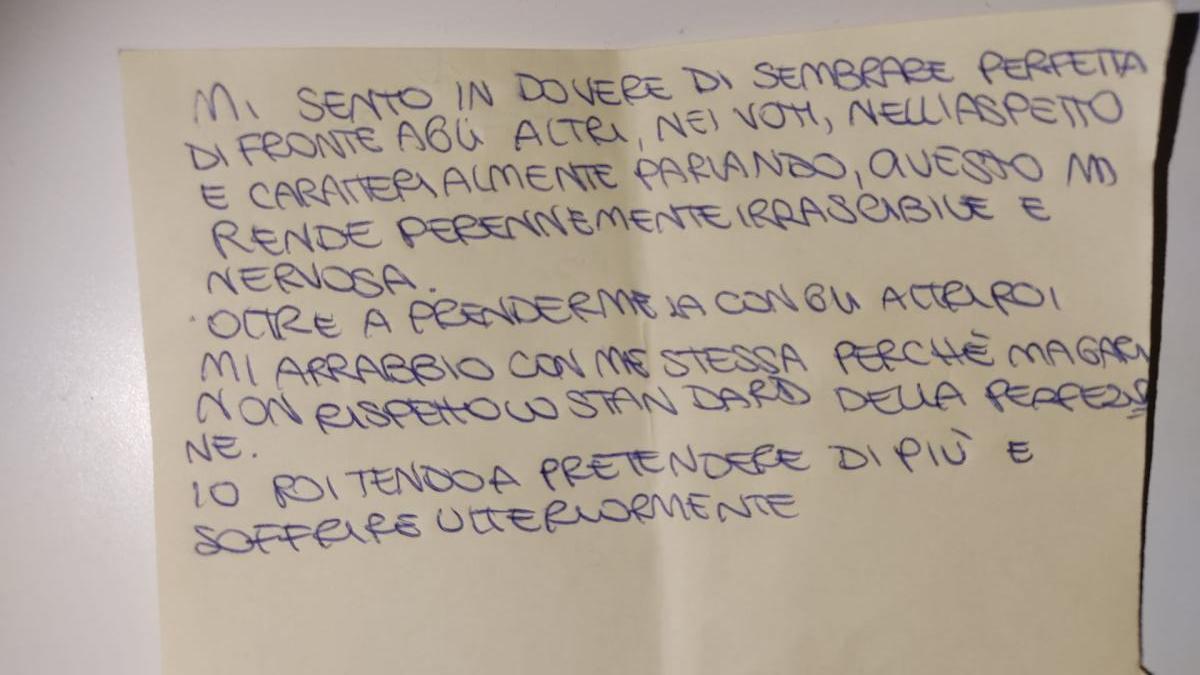 MI SENTO IN DOVERE DI SEMBRARE PERFETTA
DI FRONTE AGLI ALTRI, NEI VOTI, NELL'ASPETTO
E CARATTERIALMENTE PARLANDO, QUESTO MI
RENDE PERENNEMENTE IRRASCIBILE E
NERVOSA.
OLTRE A PRENDERMELA CON GLI ALTRI POI
MI ARRABBIO CON ME STESSA PERCHÈ MAGARI
NON RISPETTO LO STANDARD DELLA PERFEZIO
NE.
IO POI TENDO A PRETENDERE DI PIÙ E
SOFFRIRE ULTERIORMENTE